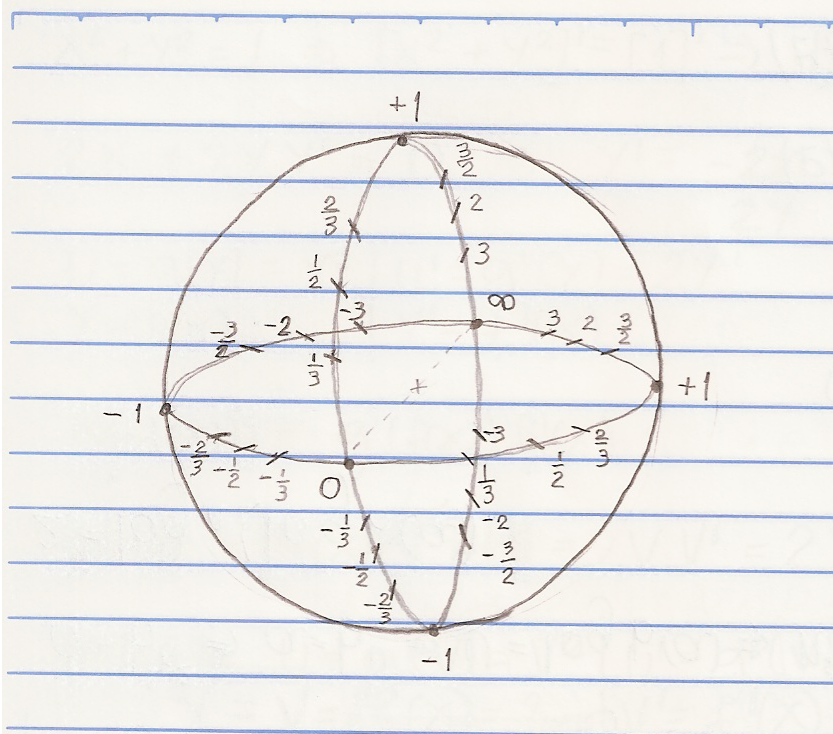 +1
3/2
2/3
2
3
1/2
∞
-3
-2
-3/2
3
2
3/2
1/3
+1
-1
-3
2/3
-2/3
-1/2
-1/3
1/2
0
1/3
-1/3
-2
-1/2
-3/2
-2/3
-1